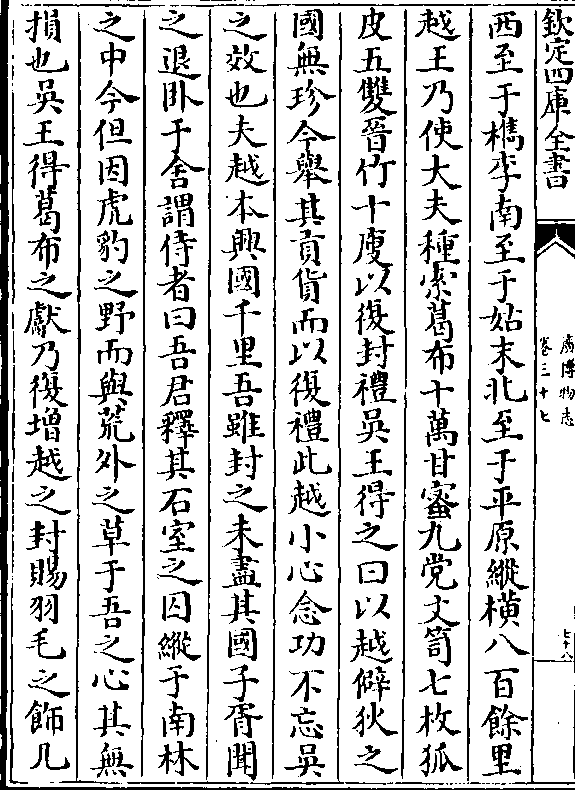 欽定四庫全書
廣博物志
卷三十七
七十八
西至于檇李南至于姑末北至于平原縱橫八百餘里
越王乃使大夫種索葛布十萬甘蜜九党文笥七枚狐
皮五雙晉竹十廋以復封禮吳王得之曰以越僻狄之
國無珍今舉其貢貨而以復禮此越小心念功不忘吳
之效也夫越本興國千里吾雖封之未盡其國子胥聞
之退卧于舍謂侍者曰吾君釋其石室之囚縱于南林
之中今但因虎豹之野而與荒外之草于吾之心其無
損也吳王得葛布之獻乃復增越之封賜羽毛之飾几